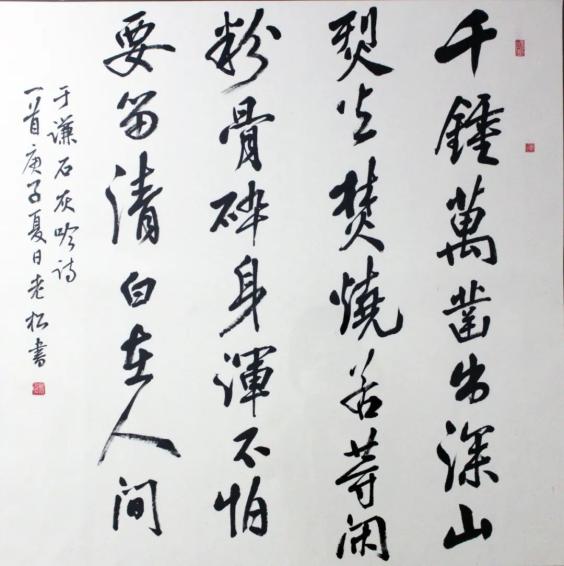 千錘萬鑿出深山
烈火焚燒若等闲
粉骨碎身渾不怕
要留清白在人间
于谦石灰吟诗
一首庚子夏日老松书